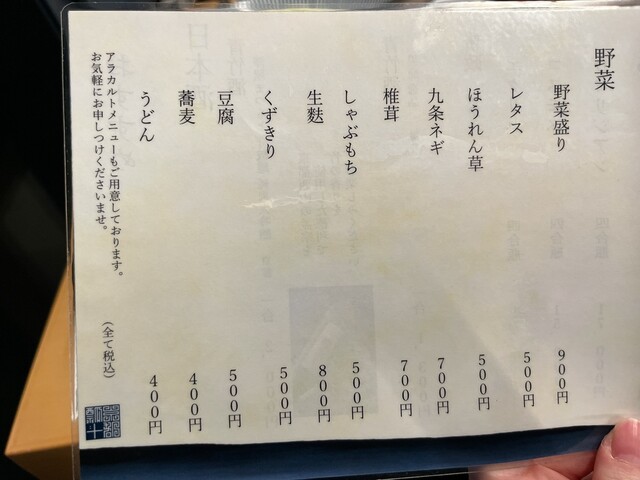 野菜
野菜盛り 900円
レタス 500円
ほうれん草 500円
九条ネギ 700円
椎茸 700円
しゃぶもち 500円
生麩 800円
くずきり 500円
豆腐 500円
蕎麦 400円
うどん 400円
アラカルトメニューもご用意しております。
お気軽にお申しつけくださいませ。
(全て税込)